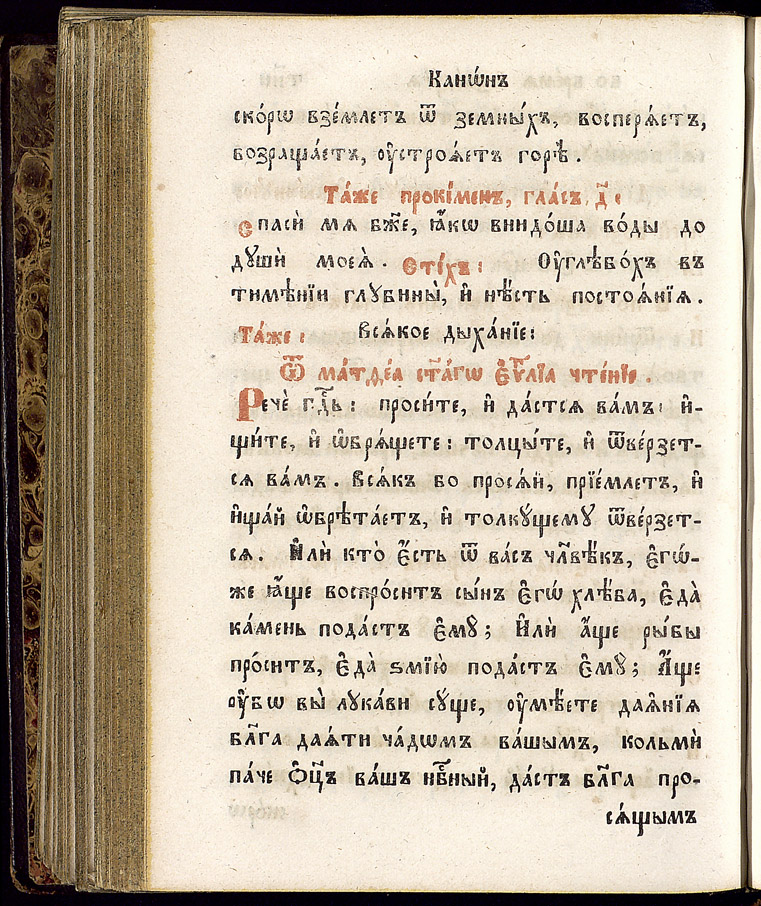 Канѡ́нъ
ско́рѡ взе́млетъ ѿ земны́хъ, восперѧ́етъ,
возраща́етъ, ᲂу҆строѧ́етъ горѣ̀.
Та́же прокі́менъ, гла́съ, д҃:
Спаси́ мѧ бж҃е, ꙗ҆́кѡ внидо́ша во́ды до
дꙋшѝ моеѧ̀. Сті́хъ: Оу҆глѣбо́хъ въ
тимѣ́нїи глꙋбины̀, и҆ нѣ́сть постоѧ́нїѧ.
Та́же: Всѧ́кое дыха́нїе:
Ѿ матѳе́а ст҃а́гѡ є҆ѵⷢ҇лїа чте́нїе.
Рече́ гд҇ь: проси́те, и҆ да́стсѧ ва́мъ: и҆-
щи́те, и҆ ѡ҆брѧ́щете: толцы́те, и҆ ѿве́рзет-
сѧ ва́мъ. Всѧ́къ бо просѧ́й, прїе́млетъ, и҆
и҆ща́й ѡ҆брѣта́етъ, и҆ толкꙋ́щемꙋ ѿве́рзет-
сѧ. И҆лѝ кто̀ є҆́сть ѿ ва́съ чл҃вѣ́къ, є҆гѡ́-
же ꙗ҆́ще воспро́ситъ сы́нъ є҆гѡ̀ хлѣ́ба, є҆да̀
ка́мень пода́стъ є҆мꙋ̀; И҆лѝ а҆́ще ры́бы
про́ситъ, є҆да̀ ѕмїю̀ пода́стъ є҆мꙋ̀; А҆́ще
ᲂу҆́бѡ вы̀ лꙋка́ви сꙋ́ще, ᲂу҆мѣ́ете даѧ́нїѧ
бл҃га даѧ́ти ча́дѡмъ ва́шымъ, кольмѝ
па́че ѻ҆ц҃ъ ва́шъ нб҇ный, да́стъ бл҃га про-
сѧ́щымъ